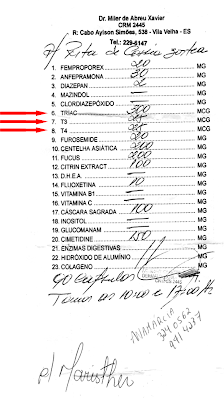 Dr. Miler de Abreu Xavier
CRM 2445
R: Cabo Aylson Simões, 538 - Vila Velha - ES
Tel.: 229-6147
p/ Rita de Cássia
1. FEMPROPOREX 20 MG
2. ANFEPRAMONA 30 MG
3. DIAZEPAN 2 MG
4. MAZINDOL MG
5. CLORDIAZEPÓXIDO MG
6. TRIAC 300 MCG
7. T3 MCG
8. T4 MCG
9. FUROSEMIDE 20 MG
10. CENTELHA ASIÁTICA 200 MG
11. FUCUS 200 MG
12. CITRIN EXTRACT 100 MG
13. D.H.E.A. MG
14. FLUOXETINA 10 MG
15. VITAMINA B1 MG
16. VITAMINA C MG
17. CÁSCARA SAGRADA 100 MG
18. INOSITOL MG
19. GLUCOMANAN MG
20. CIMETIDINE 150 MG
21. ENZIMAS DIGESTIVAS MG
22. HIDRÓXIDO DE ALUMÍNIO MG
23. COLAGENO MG
90
Tomar às 10:00 e 17:00 Hs
CRM 2445
p/